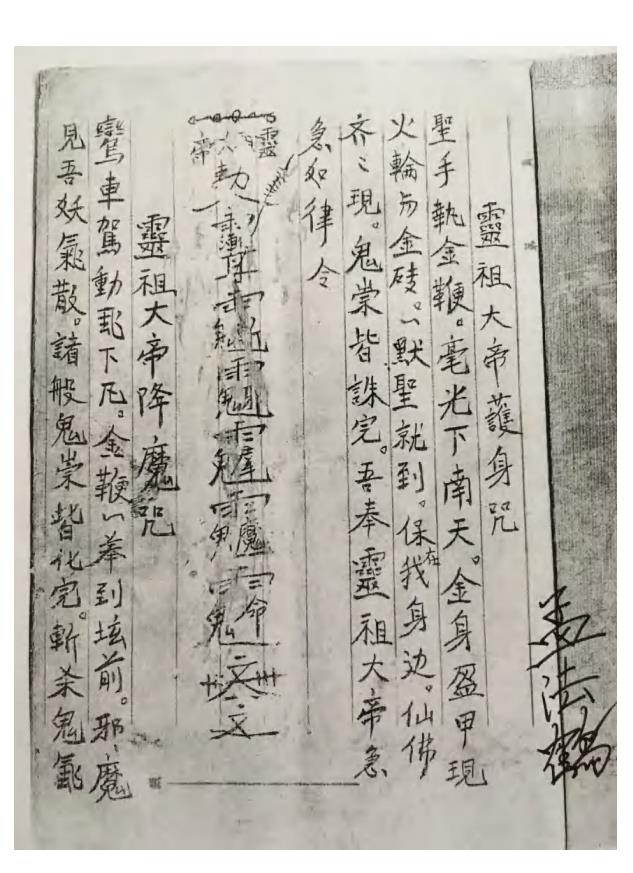 靈祖大帝護身咒
聖手執金鞭。毫光下南天。金身盔甲現
火輪另金磚。一默聖就到。保在我身边。仙佛
齐〻現。鬼祟皆誅完。吾奉靈祖大帝急
急如律令
靈祖大帝降魔咒
鸞車駕動乱下凡。金鞭一举到坛前。邪〻魔
見吾妖氣散。諸般鬼祟皆化完。斬杀鬼氣
孟法鶴